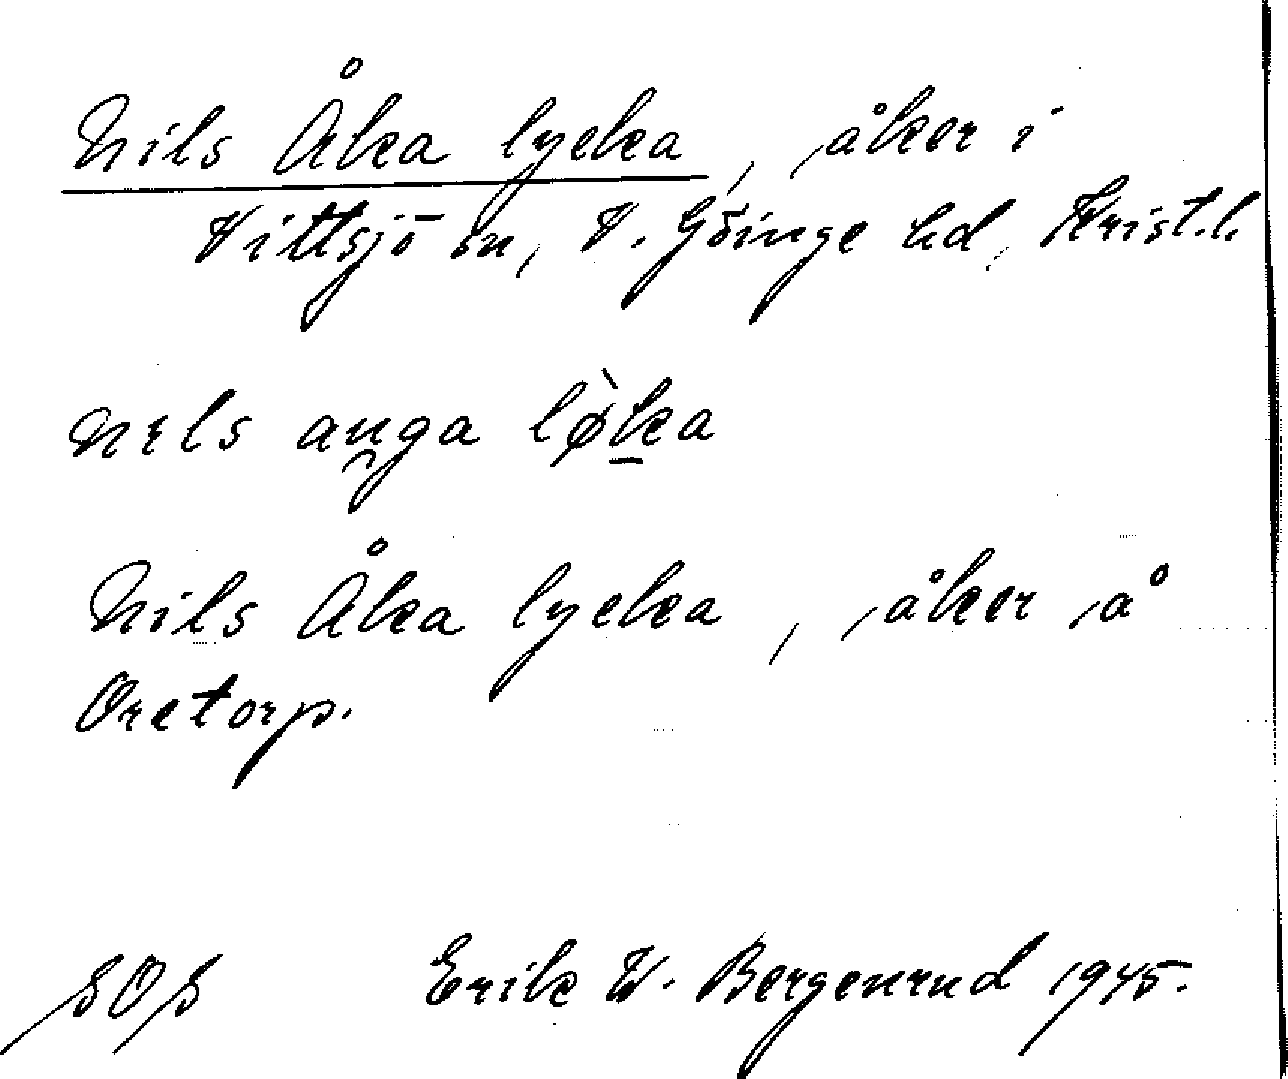 Nils Åka lycka, åker i
Vittsjö sn, V. Göinge hd, Krist.l.
nɛls au̯ga lø̀ka
Nils Åka lycka, åker å
Oretorp.
SOS Erik W. Bergenrud 1945.